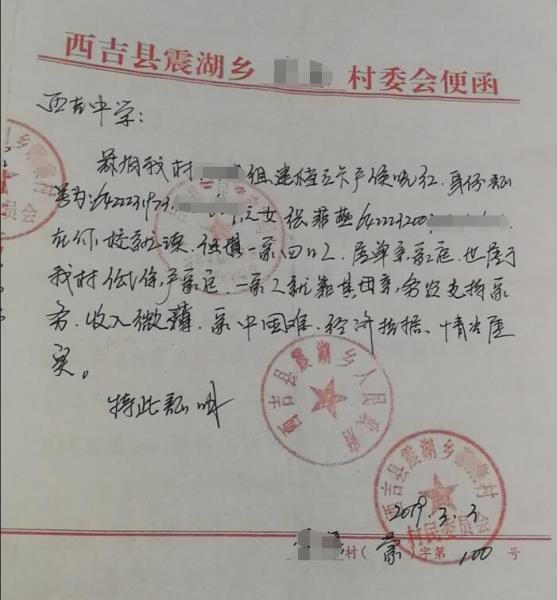 西吉县震湖乡 村委会便函
西吉中学：
兹有我村 组建档立卡户侯晓红，身份证
号为：642223197 之女张 燕642223200
在你校就读，但其一家四口人，属单亲家庭，也属于
我村低保户家庭，一家人就靠其母亲，务农支撑家
务，收入微薄，家中困难，经济拮据，情况属
实。
特此证明
西吉县震湖乡人民政府
西吉县震湖乡 村
村民委员会
2019.3.3
村（ ）字第 100 号